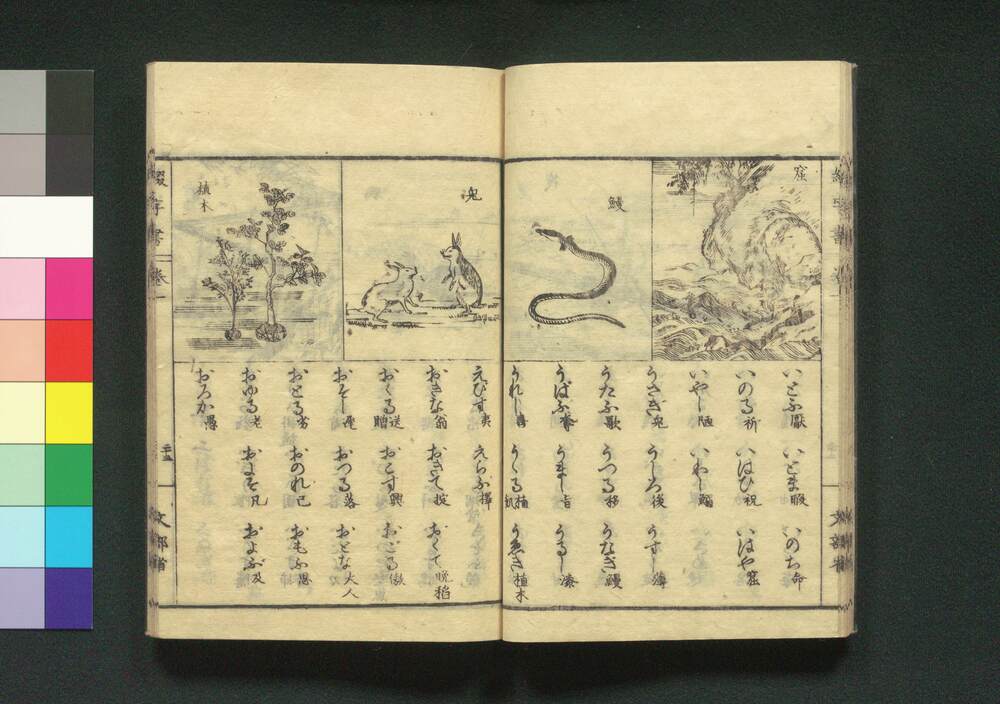 窟
鰻
いとふ厭 いとま暇 いのち命
いのる祈 いはひ祝 いはや窟
いやし陋 いわし鰯
うさぎ兔 うしろ後 うすし薄
うたふ歌 うつる移 うなぎ鰻
うばふ奪 うまし旨 うるし漆
うれし喜 うゝる植 うゑき植木
兔
植木
えびす夷 えらふ擇
おきな翁 おきて掟 おくて晩稲
おくる送贈 おこす興 おごる傲
おそし遅 おつる落 おとな大人
おとる劣 おのれ己 おもふ思
おゆる老 およそ凡 およぶ及
おろか愚
綴字書 巻一
二十五
文部省